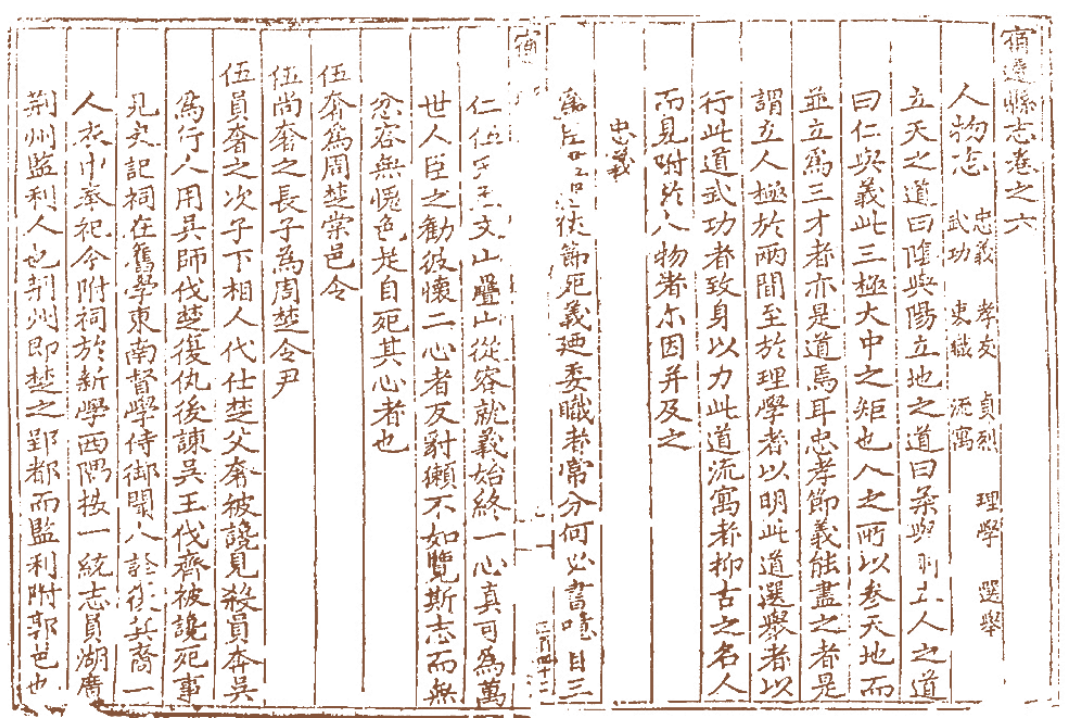 宿遷縣志卷之六
人物志 忠義 孝友 貞烈 理學 選舉
武功 吏職 流寓
立天之道曰陰與陽立地之道曰柔與剛立人之道
曰仁與義此三極大中之矩也人之所以參天地而
並立為三才者亦是道焉耳忠孝節義能盡之者是
謂立人極於兩間至於理學者以明此道選舉者以
行此道武功者致身以力此道流寓者抑古之名人
而見附於人物者尒因并及之
忠義
為臣 伏節死義廼委職者常分何必書噫自三
宿
三百四十二
仁伍 文山疊山從容就義始終一心真可為萬
世人臣之勸彼懷二心者反豺獺不如覽斯志而無
忿容無愧色是自死其心者也
伍奢為周楚棠邑令
伍尚奢之長子為周楚令尹
伍員奢之次子下相人代仕楚父奢被讒見殺員奔吳
為行人用吳師伐楚復仇後諫吳王伐齊被讒死事
見史記祠在舊學東南督學侍御聞人 後 裔一
人衣巾奉祀今附祠於新學西隅按一統志員湖廣
荆州監利人也荆州即楚之郢都而監利附郭邑也